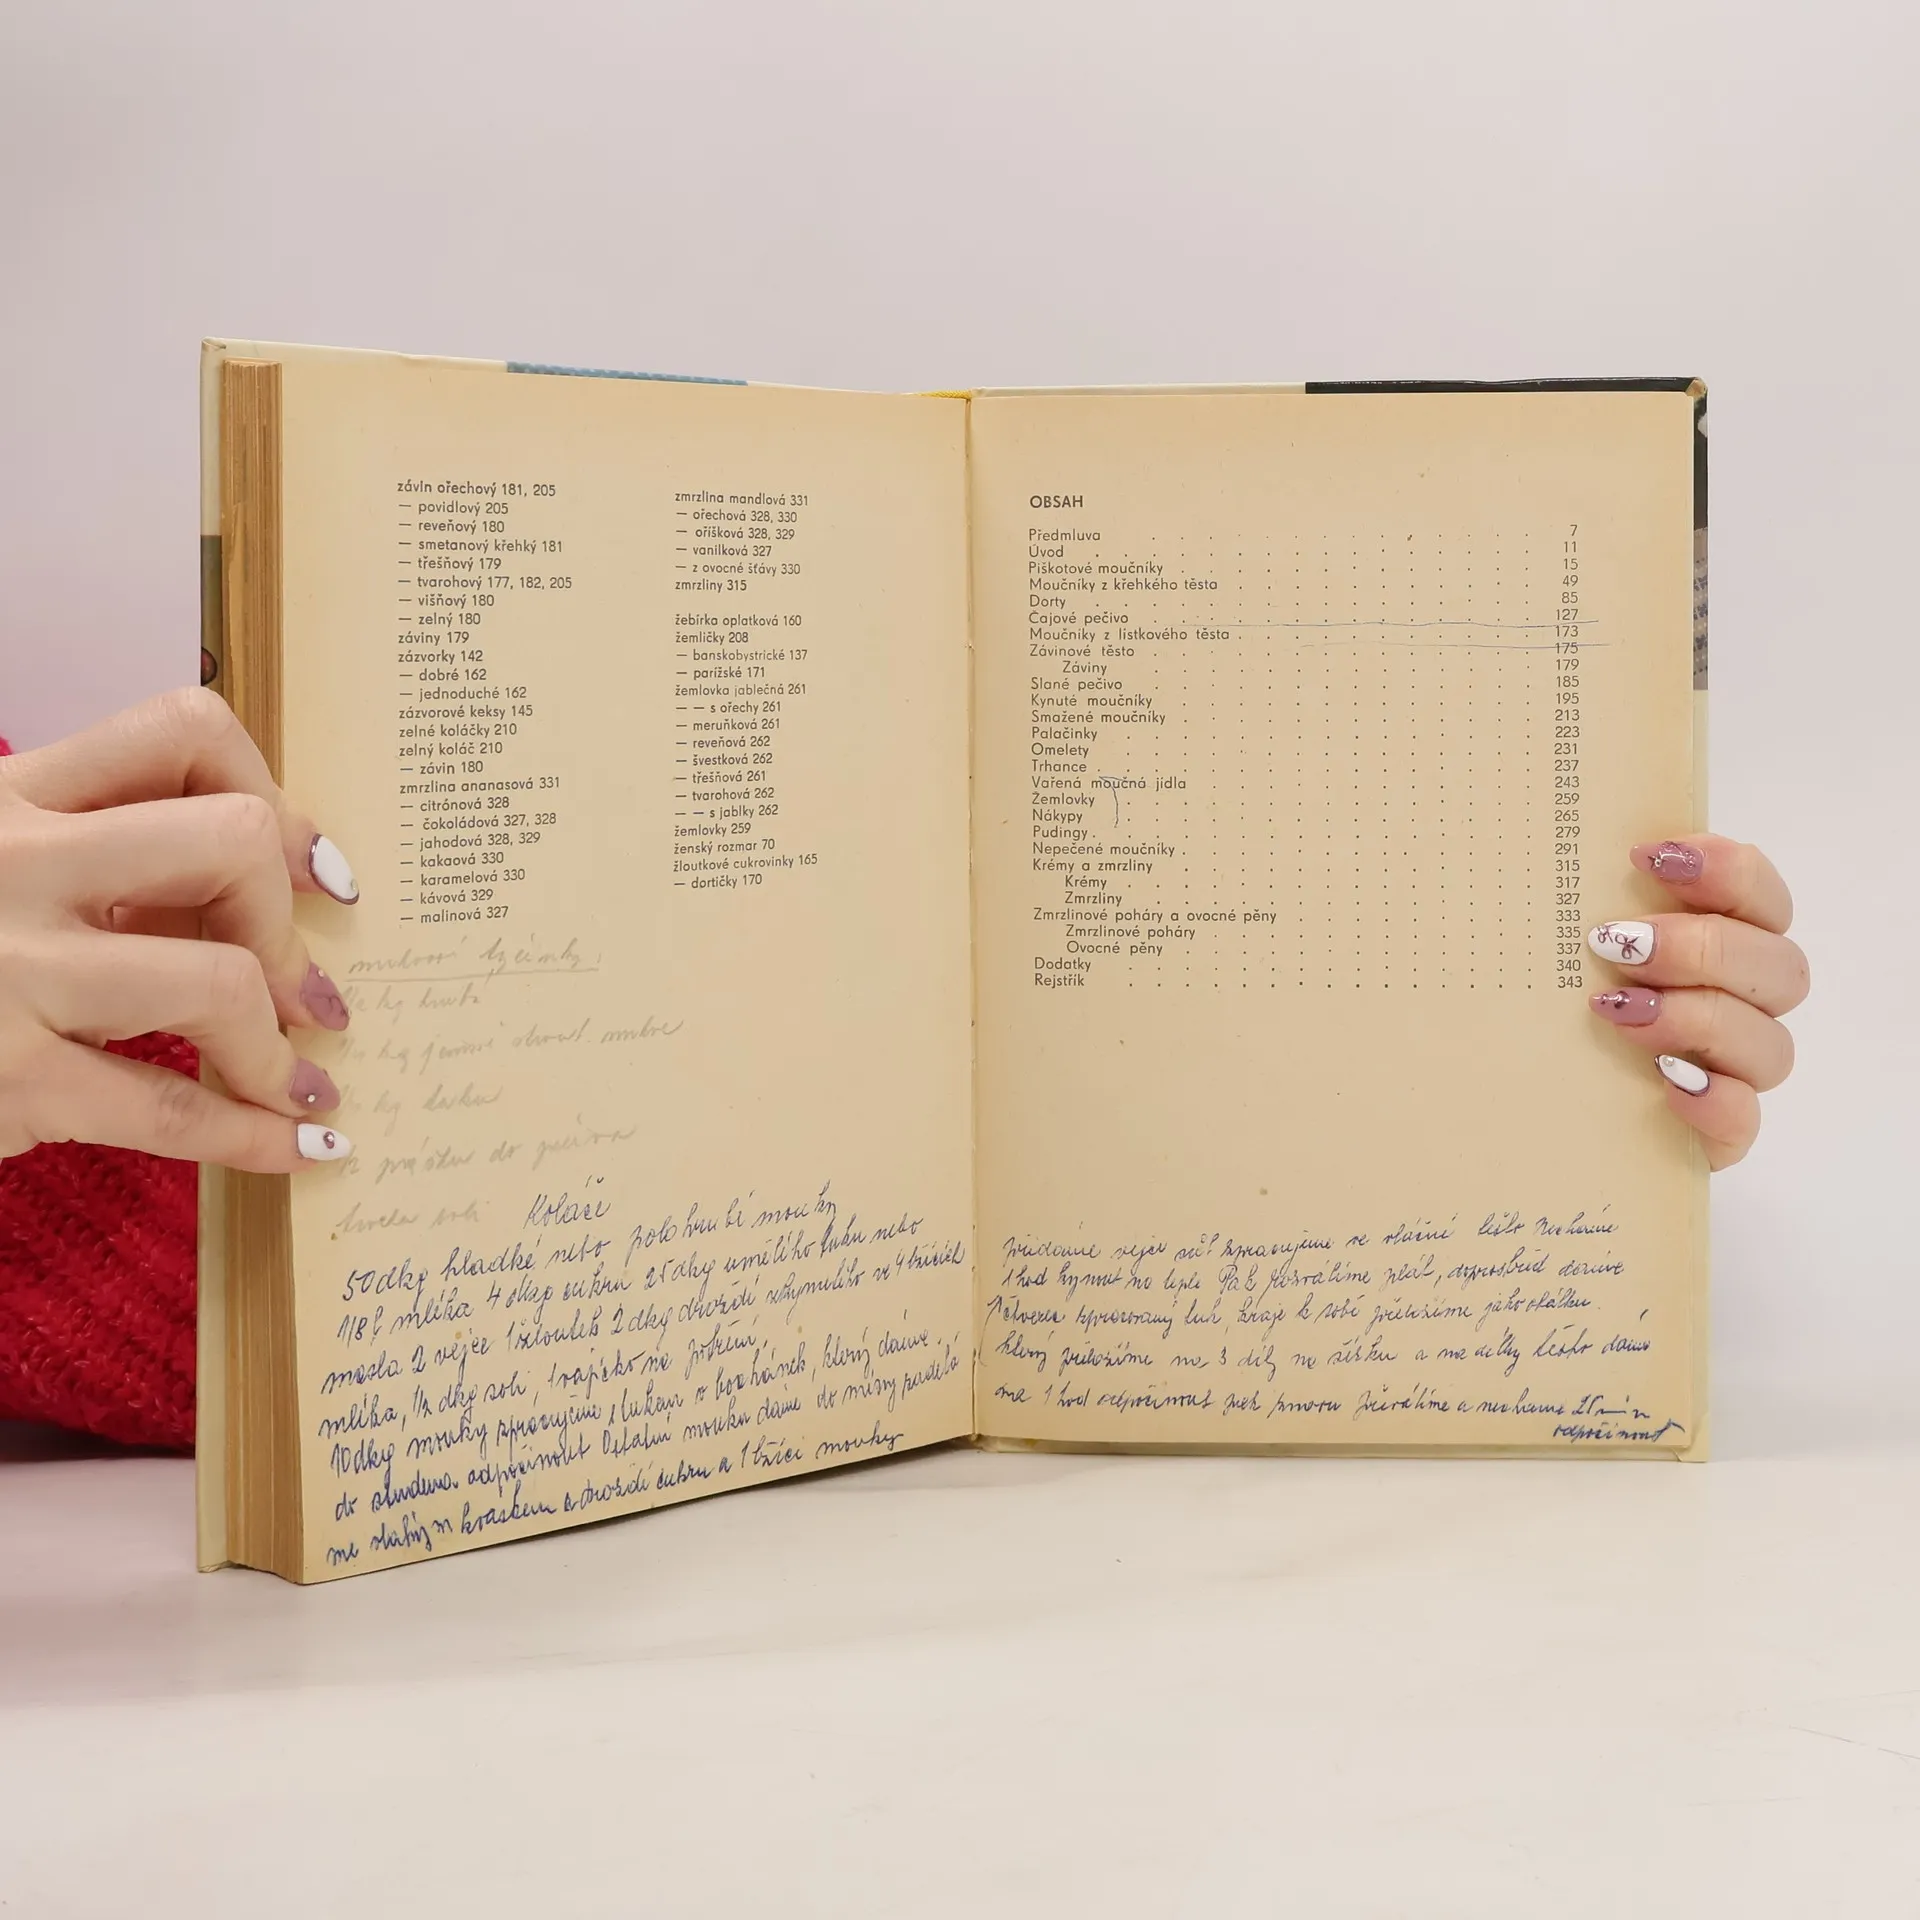 závin ořechový 181, 205
— povidlový 205
— reveňový 180
— smetanový křehký 181
— třešňový 179
— tvarohový 177, 182, 205
— višňový 180
— zelný 180
záviny 179
zázvorky 142
— dobré 162
— jednoduché 162
zázvorové keksy 145
zelné koláčky 210
zelný koláč 210
— závin 180
zmrzlina ananasová 331
— citrónová 328
— čokoládová 327, 328
— jahodová 328, 329
— kakaová 330
— karamelová 330
— kávová 329
— malinová 327
zmrzlina mandlová 331
— ořechová 328, 330
— oříšková 328, 329
— vanilková 327
— z ovocné šťávy 330
zmrzliny 315
žebírka oplatková 160
žemličky 208
— banskobystrické 137
— pařížské 171
žemlovka jablečná 261
— — s ořechy 261
— meruňková 261
— reveňová 262
— švestková 262
— třešňová 261
— tvarohová 262
— — s jablky 262
žemlovky 259
ženský rozmar 70
žloutkové cukrovinky 165
— dortičky 170
kg
kg
kg
do
Koláče
50 dkg hladké nebo polohrubé mouky
1/8 l mléka 4 dkg cukru 25 dkg umělého tuku nebo
masla 2 vejce 1 žloutek 2 dkg droždí vzkynulého ve 4 lžících
mléka, 1/2 dkg soli, 1 vajíčko na potření,
10 dkg mouky zpracujeme s tukem v bochánek, který dáme
do studena odpočinout Ostatní mouku dáme do mísy zadělá
me slabým kváskem z droždí cukru a 1 lžíci mouky
OBSAH
Předmluva 7
Úvod 11
Piškotové moučníky 15
Moučníky z křehkého těsta 49
Dorty 85
Čajové pečivo 127
Moučníky z lístkového těsta 173
Závinové těsto 175
Záviny 179
Slané pečivo 185
Kynuté moučníky 195
Smažené moučníky 213
Palačinky 223
Omelety 231
Trhance 237
Vařená moučná jídla 243
Žemlovky 259
Nákypy 265
Pudingy 279
Nepečené moučníky 291
Krémy a zmrzliny 315
Krémy 317
Zmrzliny 327
Zmrzlinové poháry a ovocné pěny 333
Zmrzlinové poháry 335
Ovocné pěny 337
Dodatky 340
Rejstřík 343
přidáme vejce sůl zpracujeme ve vláčné těsto Necháme
1 hod kynout na teple Pak rozválíme plát, doprostřed dáme
čtverec zpracovaný tuk, kraje k sobě přeložíme jako obálku
který přeložíme na 3 díly na šířku a na délky těsto dáme
na 1 hod odpočinout pak znovu převálíme a necháme 25 min
odpočinout